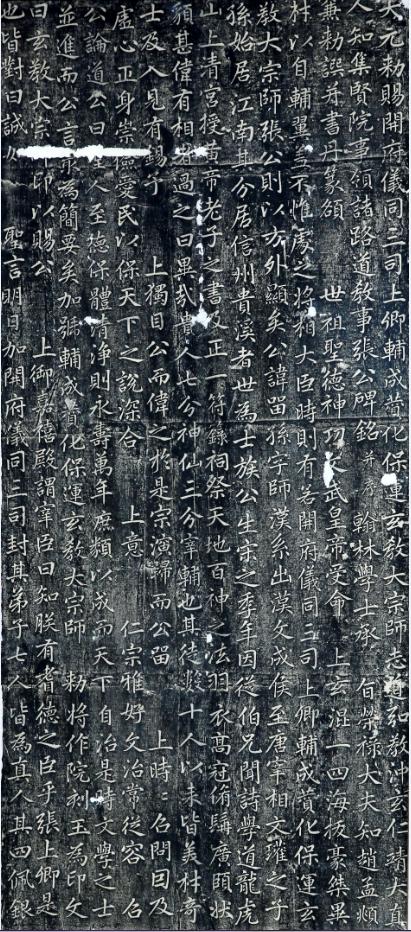 大元勑賜開府儀同三司上卿輔成賛化保運玄教大宗師志道弘教沖玄仁靖大真
人知集賢院事領諸路道教事張公碑銘并序 翰林學士承旨榮祿大夫知趙孟頫
兼勑譔并書丹篆額 世祖聖德神功文武皇帝受命 上玄混一四海拔豪桀異
材以自輔翼焉不惟處之將相大臣時則有若開府儀同三司上卿輔成賛化保運玄
教大宗師張公則以方外顯矣公諱留孫字師漢系出漢文成侯至唐宰相文瓘之子
孫始居江南其分居信州貴溪者世為士族公生宋之季年因從伯兄聞詩學道龍虎
山上清宮授黃帝老子之書及正一符籙祠祭天地百神之法羽衣高冠脩髯廣頤狀
貌甚偉有相者過之曰異哉貴人七分神仙三分宰輔也其徒數十人以来皆美材奇
士及入見有錫予 上獨目公而偉之於是宗演歸而公留 上時召問因及
虛心正身崇儉愛民以保天下之說深合 上意 仁宗雅好文治常從容 召
公論道公曰人至德保體清淨則永壽萬年庶類以成而天下自治是時文學之士
並進而公言最為簡要矣加號輔成賛化保運玄教大宗師 勑將作院刻玉為印文
曰玄教大宗印以賜公 上御嘉禧殿謂宰臣曰知朕有耆德之臣乎張上卿是
也皆對曰誠如 聖言明日加開府儀同三司封其弟子七人皆為真人其四佩銀